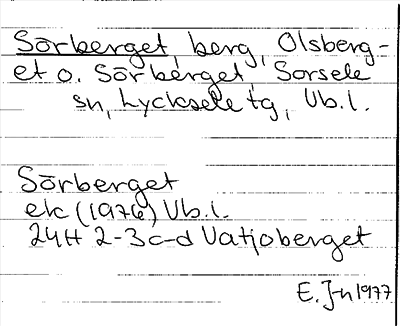 Sörberget, berg, Olsberg-
et o. Sörberget, Sorsele
sn, Lycksele tg, Vb.l.
Sörberget
ek (1976) Vb.l.
24H 2-3c-d Vatjoberget
E. J-n 1977